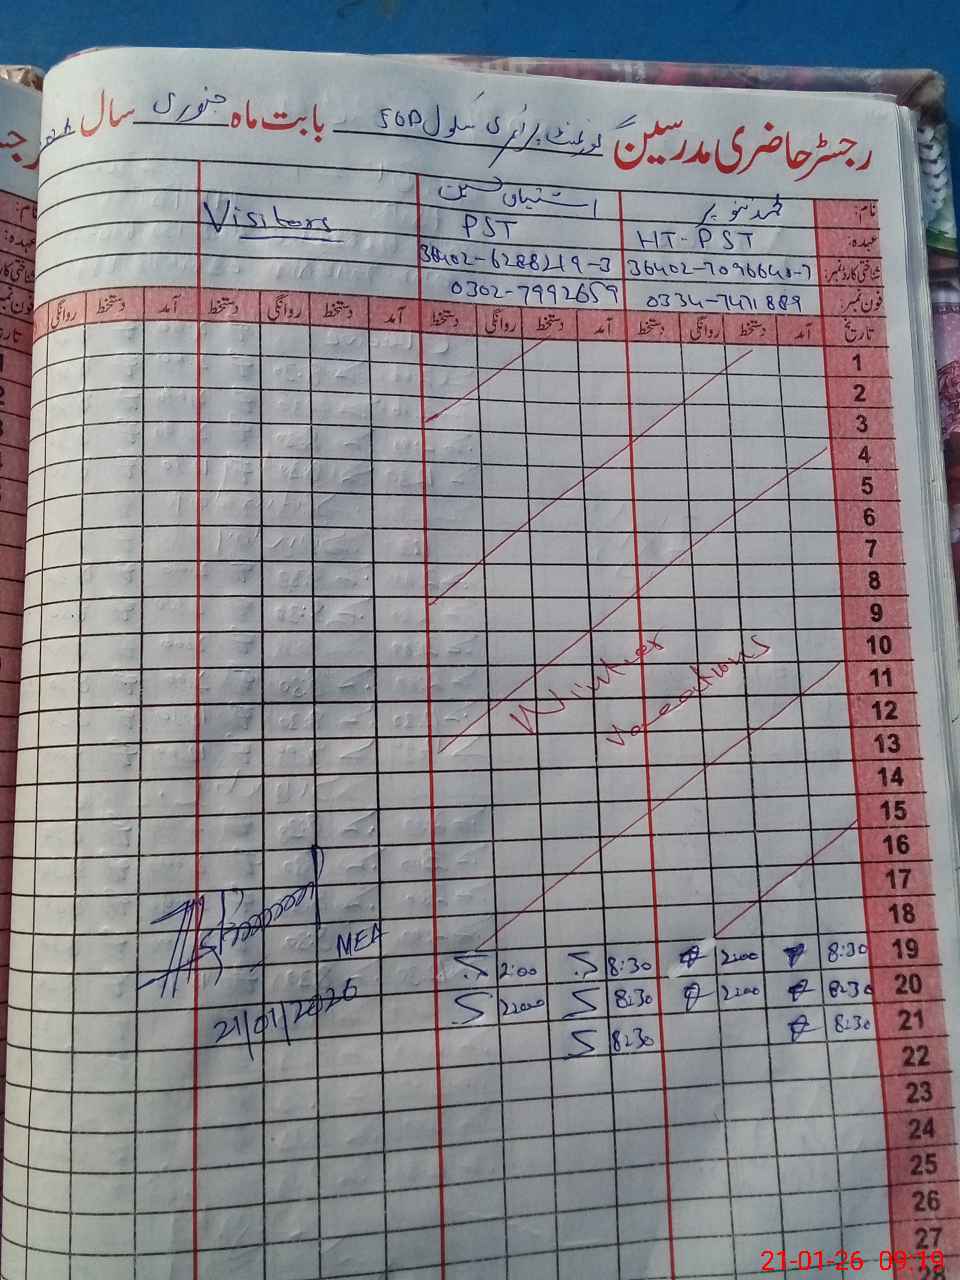 رجسٹر حاضری مدرسین گورنمنٹ پرائمری سکول 5GD بابت ماہ جنوری سال
نام: محمد تنویر اشتیاق حسین
عہدہ: HT-PST PST Visitors
شناختی کارڈ نمبر: 36402-7096640-7 36402-6288219-3
فون نمبر: 0334-7471889 0302-7992659
تاریخ آمد دستخط روانگی دستخط آمد دستخط روانگی دستخط آمد دستخط روانگی دستخط آمد دستخط روانگی
1
2
3
4
5
6
7
8
9
10
11
Winter vacations
12
13
14
15
16
17
18
19 8:30 2:00 8:30 2:00
MEA
20 8:30 2:00 8:30 2:00
21/01/2026
21 8:30 8:30
22
23
24
25
26
27
28
21-01-26 09:19